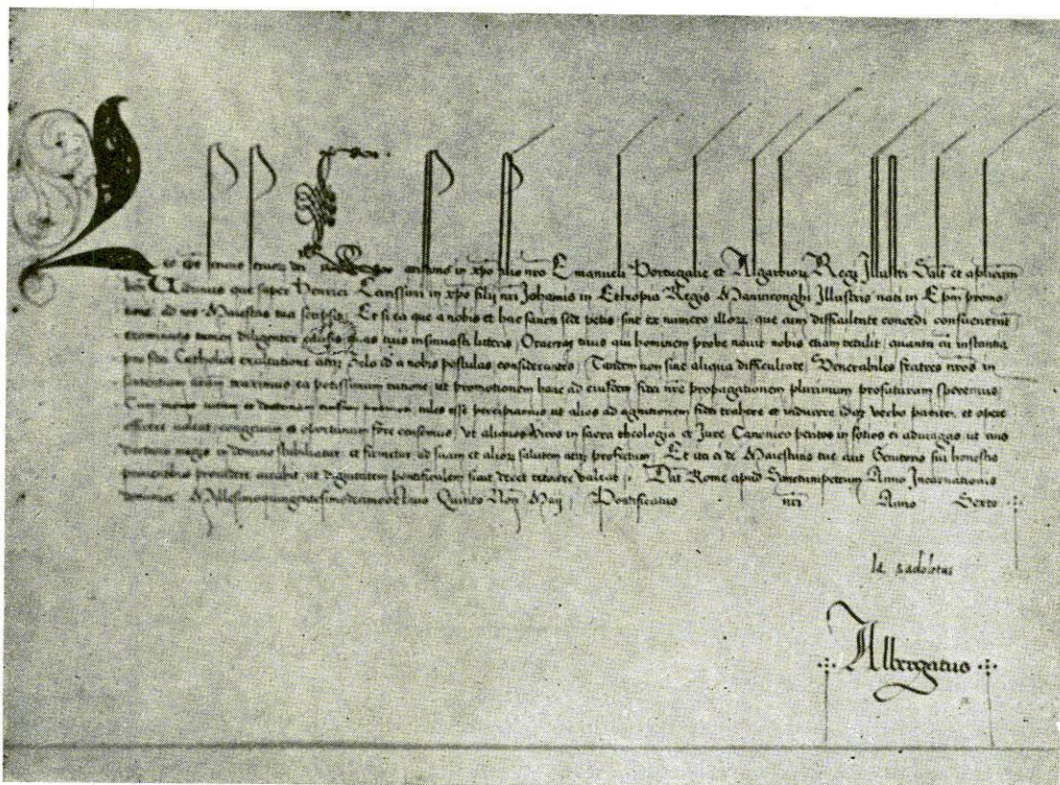 Leo eps servus servorum dei Carissimo in xpo filio nro Emanueli Portugalie et Algarbiorz Regi Illustri Saltm et aplicam
ben Vidimus que super Henrici Carissimi in xpo filij nri Johannis in Ethiopia Regis Maniconghi Illustris nati in Epm promo
tione ad nos Maiestas tua scripsit Et si ea que a nobis et hac sancta sede petis sint ex numero illorz que cum difficultate concedi consueverunt
examinatis tamen diligenter causis quas tuis insinuasti litteris, Oratorqz tuus qui hominem probe novit nobis etiam retulit, quanta cum instantia
pro fidei Catholice exaltatione atqz zelo id a nobis postulas considerantes, Tandem non sine aliqua difficultate, Venerabiles fratres nros in
sententiam traximus ea potissimum ratione, ut promotionem hanc ad eiusdem fidei nre propagationem plurimum profuturam speremus
Cum mores et doctrinam tales esse percipiamus ut alios ad agnitionem fidei trahere et inducere verbo pariter et opere
efficere valeat, congruum et oportunum fore censemus, Ut aliquos viros in sacra theologia et Jure Canonico peritos in sotios ei adiungas ut eius
doctrina magis in domino stabiliatur et firmetur ad suam et aliorz salutem atqz profectum, Et ita ei de Maiestatis tue aut Genitoris sui honestis
proventibus providere curabis, ut dignitatem pontificalem sicut decet retinere valeat, Dat Rome apud Sanctumpetrum Anno Incarnationis
dominice Millesimoquingentesimodecimooctavo Quinto Non Maij, Pontificatus nri Anno Sexto
Ja. Sadoletus
Albergatus